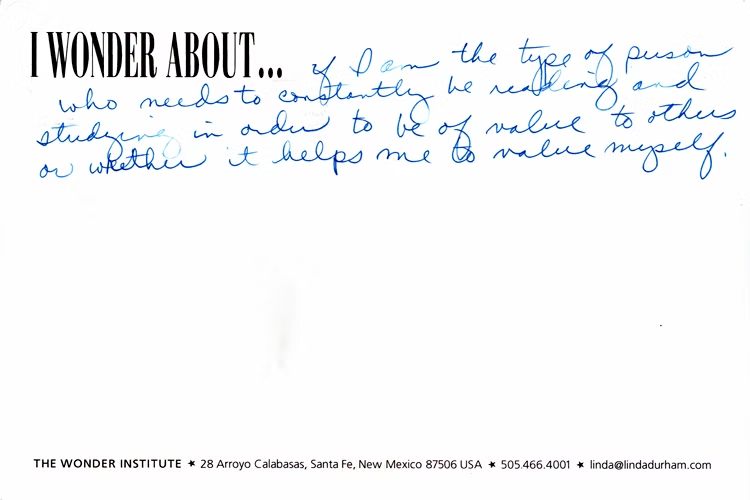 I WONDER ABOUT... if I am the type of person
who needs to constantly be reading and
studying in order to be of value to others
or whether it helps me to value myself.
THE WONDER INSTITUTE ★ 28 Arroyo Calabasas, Santa Fe, New Mexico 87506 USA ★ 505.466.4001 ★ linda@lindadurham.com